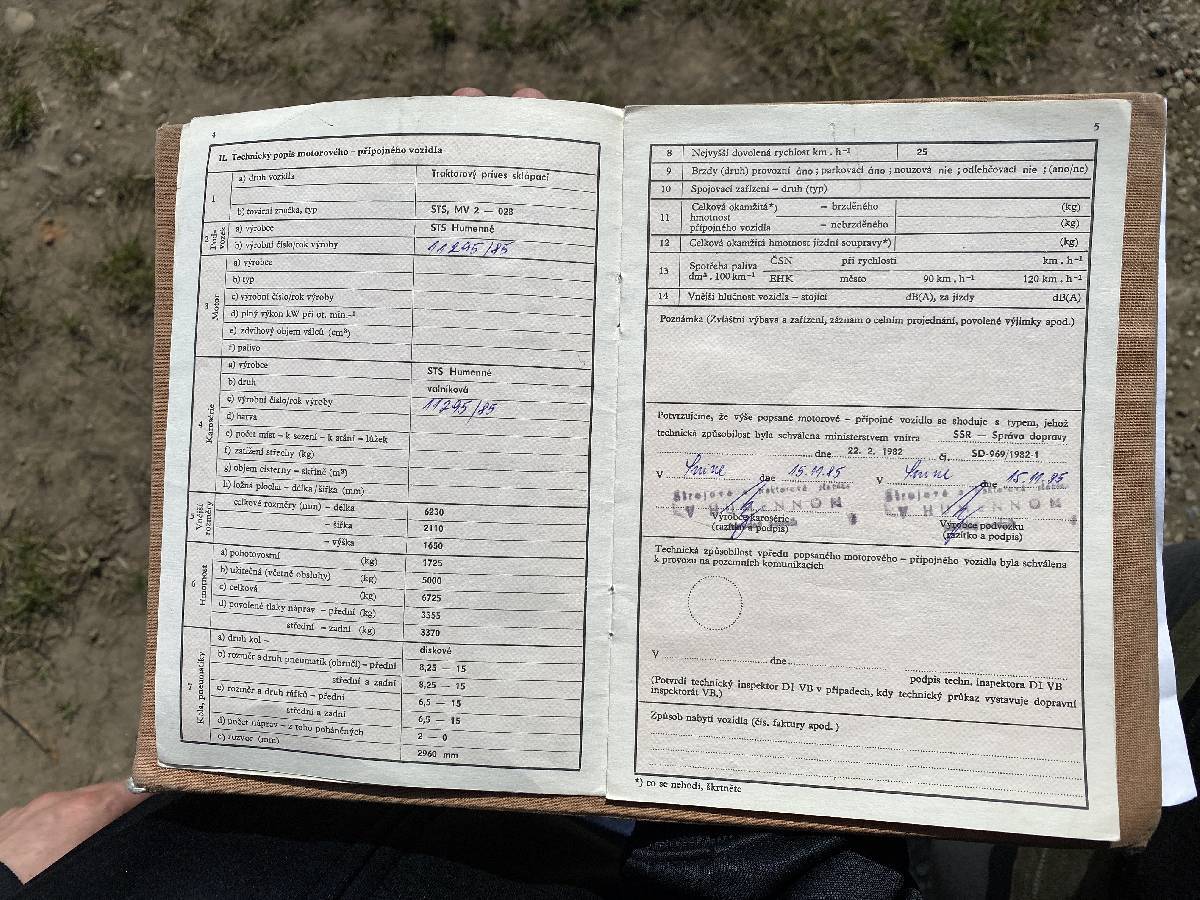 4
II. Technický popis motorového – přípojného vozidla
1 a) druh vozidla Traktorový príves sklápací
b) tovární značka, typ STS, MV 2 — 028
2 Podvozek a) výrobce STS Humenné
b) výrobní číslo/rok výroby 11295/85
3 Motor a) výrobce
b) typ
c) výrobní číslo/rok výroby
d) plný výkon kW při ot. min.⁻¹
e) zdvihový objem válců (cm³)
f) palivo
4 Karosérie a) výrobce STS Humenné
b) druh valníková
c) výrobní číslo/rok výroby 11295/85
d) barva
e) počet míst – k sezení – k stání – lůžek
f) zatížení střechy (kg)
g) objem cisterny – skříně (m³)
h) ložná plocha – délka/šířka (mm)
5 Vnější rozměry celkové rozměry (mm) – délka 6230
– šířka 2110
– výška 1650
6 Hmotnost a) pohotovostní (kg) 1725
b) užitečná (včetně obsluhy) (kg) 5000
c) celková (kg) 6725
d) povolené tlaky náprav – přední (kg) 3355
střední – zadní (kg) 3370
7 Kola, pneumatiky a) druh kol – diskové
b) rozměr a druh pneumatik (obručí) – přední 8,25 — 15
střední a zadní 8,25 — 15
c) rozměr a druh ráfků – přední 6,5 — 15
střední a zadní 6,5 — 15
d) počet náprav – z toho poháněných 2 — 0
e) rozvor (mm) 2960 mm
5
8 Nejvyšší dovolená rychlost km . h⁻¹ 25
9 Brzdy (druh) provozní áno ; parkovací áno ; nouzová nie ; odlehčovací nie ; (ano/ne)
10 Spojovací zařízení – druh (typ)
11 Celková okamžitá*) – brzděného (kg)
hmotnost
přípojného vozidla – nebrzděného (kg)
12 Celková okamžitá hmotnost jízdní soupravy*) (kg)
13 Spotřeba paliva ČSN při rychlosti km . h⁻¹
dm³ . 100 km⁻¹ EHK město 90 km . h⁻¹ 120 km . h⁻¹
14 Vnější hlučnost vozidla – stojící dB(A), za jízdy dB(A)
Poznámka (Zvláštní výbava a zařízení, záznam o celním projednání, povolené výjimky apod.)
Potvrzujeme, že výše popsané motorové – přípojné vozidlo se shoduje s typem, jehož
technická způsobilost byla schválena ministerstvem vnitra SSR — Správa dopravy
dne 22. 2. 1982 čj. SD-969/1982-1
V Snine dne 15.11.85 V Snine dne 15.11.85
Strojová a traktorová stanica Strojová a traktorová stanica
V HUMENNOM V HUMENNOM
Výrobce karosérie Výrobce podvozku
(razítko a podpis) (razítko a podpis)
Technická způsobilost vpředu popsaného motorového – přípojného vozidla byla schválena
k provozu na pozemních komunikacích
V dne
podpis techn. inspektora DI VB
(Potvrdí technický inspektor DI VB v případech, kdy technický průkaz vystavuje dopravní
inspektorát VB.)
Způsob nabytí vozidla (čís. faktury apod.)
*) co se nehodí, škrtněte